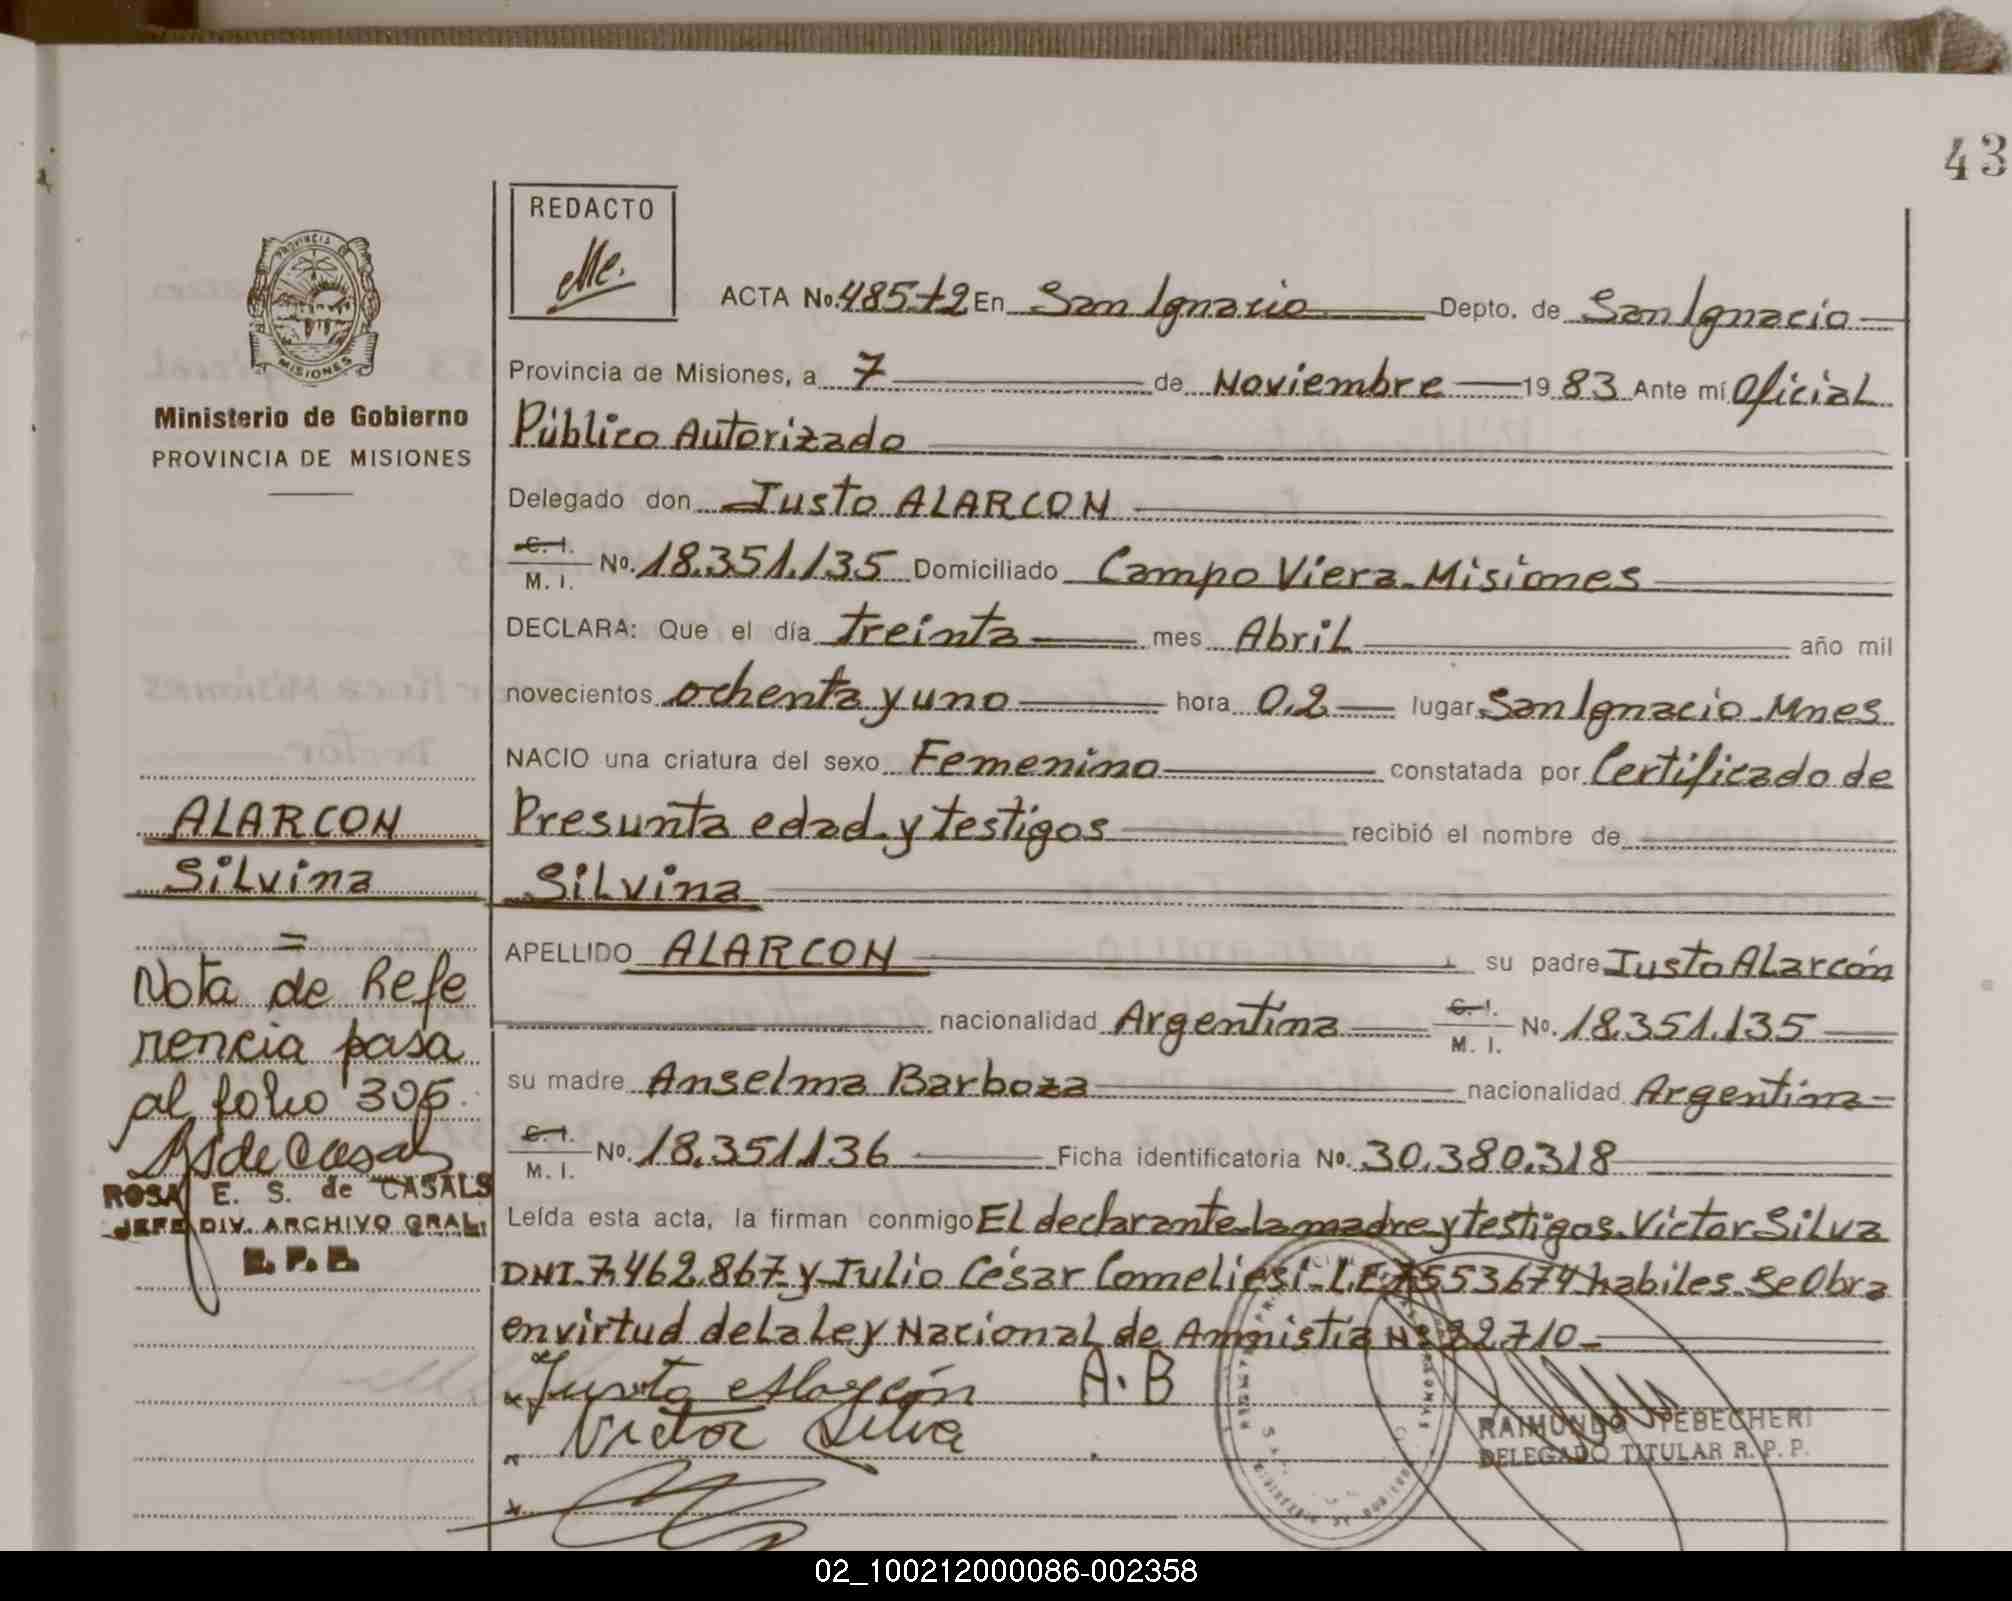 43
REDACTO
PROVINCIA DE
MISIONES
Ministerio de Gobierno
PROVINCIA DE MISIONES
ACTA No. 485-t2 En San Ignacio Depto. de San Ignacio
Provincia de Misiones, a 7 de Noviembre 19 83 Ante mí Oficial
Público Autorizado
Delegado don Justo ALARCON
C. I.
M. I. No. 18.351.135 Domiciliado Campo Viera-Misiones
DECLARA: Que el día treinta mes Abril año mil
novecientos ochenta y uno hora 0,2 lugar San Ignacio-Mnes
NACIO una criatura del sexo Femenino constatada por Certificado de
Presunta edad y testigos recibió el nombre de
Silvina
APELLIDO ALARCON su padre Justo Alarcón
nacionalidad Argentina C. I.
M. I. No. 18.351.135
su madre Anselma Barboza nacionalidad Argentina
C. I.
M. I. No. 18.351.136 Ficha identificatoria No. 30.380.318
Leída esta acta, la firman conmigo El declarante-la madre y testigos. Victor Silva
DNI-7.462.867-y-Julio César Comeliesi-L.E. 7553674 habiles. Se Obra
en virtud de la Ley Nacional de Amnistia Nº 22.710-
Justo Alarcón A.B
Victor Silva
RAIMUNDO
DELEGADO TITULAR R. P. P.
ALARCON
Silvina
=
Nota de Refe
rencia pasa
al folio 305.
RSdeCasals
ROSA E. S. de CASALS
JEFE DIV. ARCHIVO GRAL.
R. P. P.
02_100212000086-002358